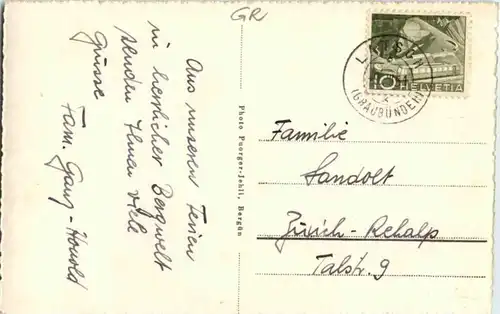 GR
Aus unseren Ferien
in herrlicher Bergwelt
senden Ihnen viele
Grüsse
Fam. Ganz-Honold
Photo Puorger-Jehli, Bergün
10 HELVETIA
(GRAUBÜNDEN)
Familie
Sandolt
Zürich-Rehalp
Talstr. 9